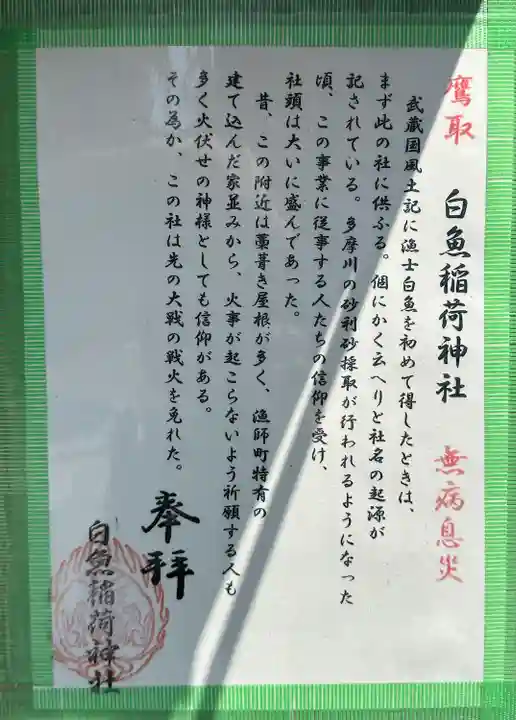 鷹取　白魚稲荷神社　無病息災
武蔵国風土記に漁士白魚を初めて得したときは、
まず此の社に供ふる。個にかく云へりと社名の起源が
記されている。多摩川の砂利砂採取が行われるようになった
頃、この事業に従事する人たちの信仰を受け、
社頭は大いに盛んであった。
昔、この附近は藁葺き屋根が多く、漁師町特有の
建て込んだ家並みから、火事が起こらないよう祈願する人も
多く火伏せの神様としても信仰がある。
その為か、この社は先の大戦の戦火を免れた。
奉拝
白魚稲荷神社